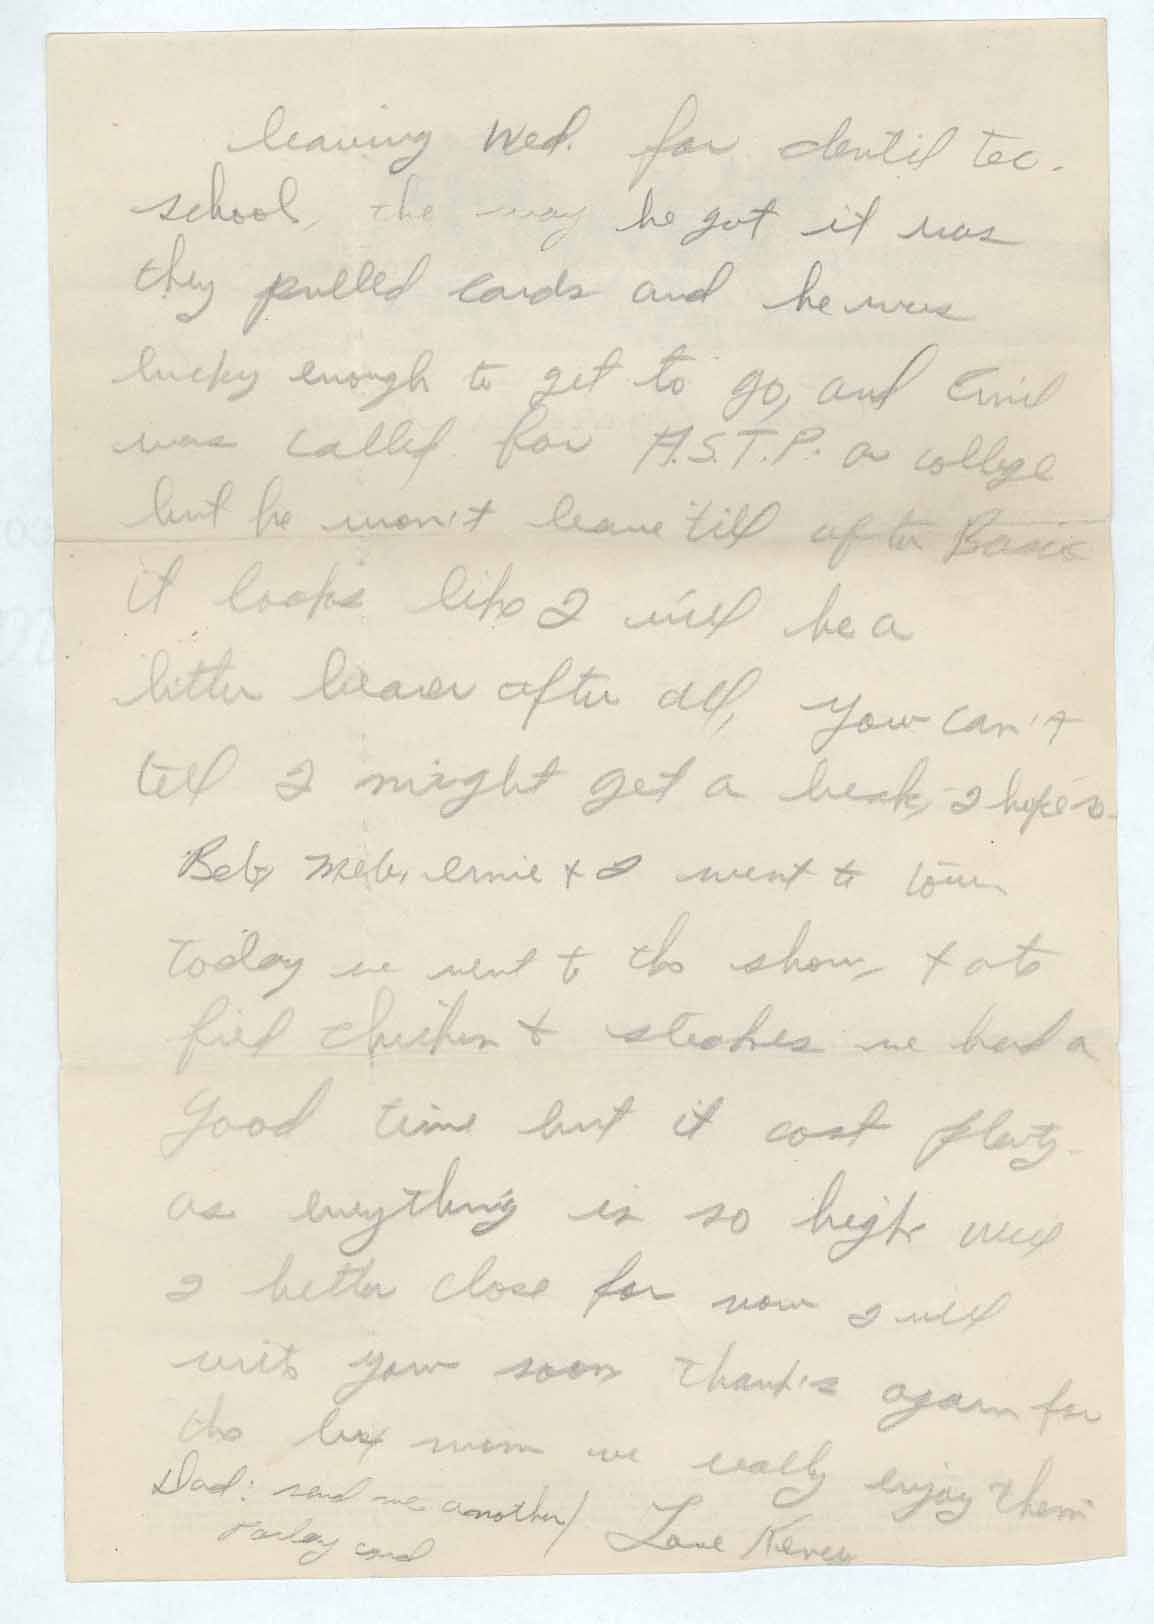 leaving Wed. for dentil tec.
school, the way he got it was
they pulled cards and he was
lucky enough to get to go, and Ernie
was called for A.S.T.P. or college
but he won't leave till after Basic
it looks like I will be a
litter bearer after all, you can't
tell I might get a break, I hope so.
Bob, Mel, ernie + I went to town
today we went to the show, + ate
fried chicken + steakes we had a
good time but it cost plenty
as everything is so high well
I better close for now I will
write you soon thanks again for
the box mom we really enjoy them
Dad: send me another Love
card